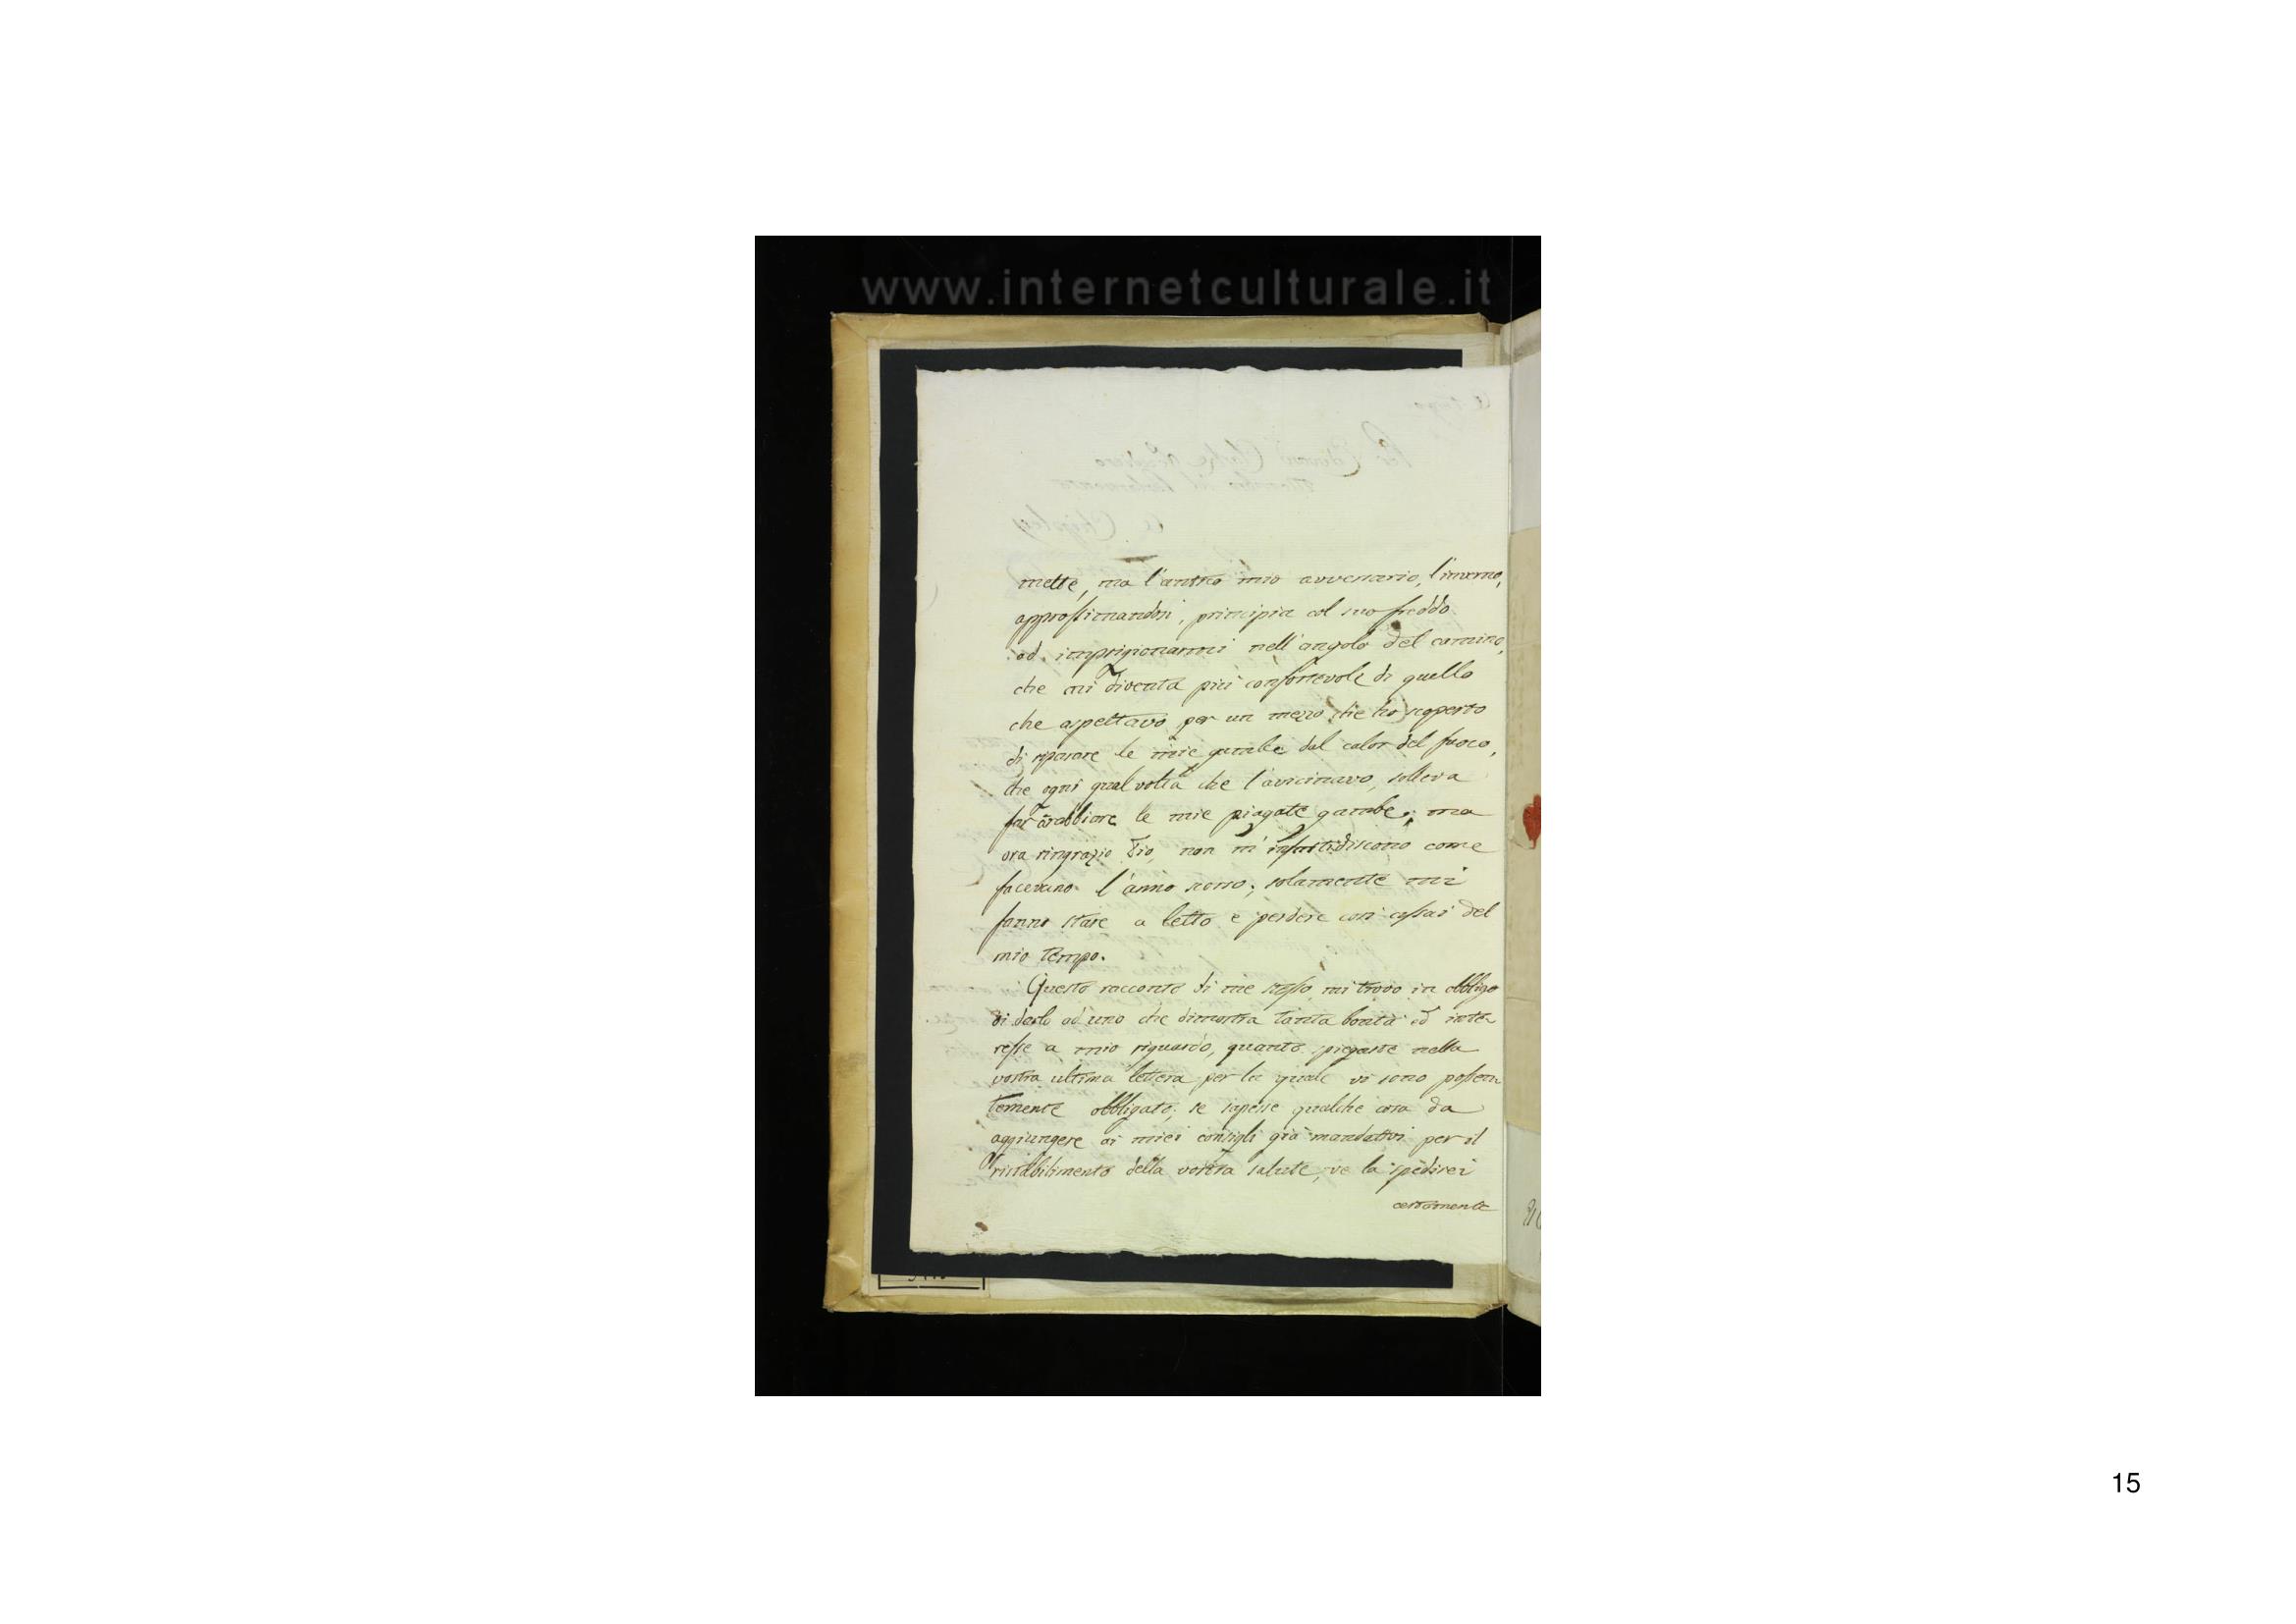 www.internetculturale.it
mette, ma l'antico mio avversario, l'inverno,
approssimandosi, principia col suo freddo
ad imprigionarmi nell'angolo del camino,
che mi diventa più confortevole di quello
che aspettavo per un mezzo che ho scoperto
di riparare le mie gambe dal calor del fuoco,
che ogni qual volta che l'avicinavo, solleva
far arabbiare le mie piagate gambe; ma
ora ringrazio Dio, non m'infastidiscono come
facevano l'anno scorso; solamente mi
fanno stare a letto e perdere così assai del
mio tempo.
Questo racconto di me stesso mi trovo in obbligo
di darlo ad uno che dimostra tanta bontà ed inte-
resse a mio riguardo, quanto spiegaste nella
vostra ultima lettera per la quale vi sono possen-
temente obbligato; se sapesse qualche cosa da
aggiungere ai miei consigli già mandatovi per il
ristabilimento della vostra salute, ve la spedirei
certamente
15